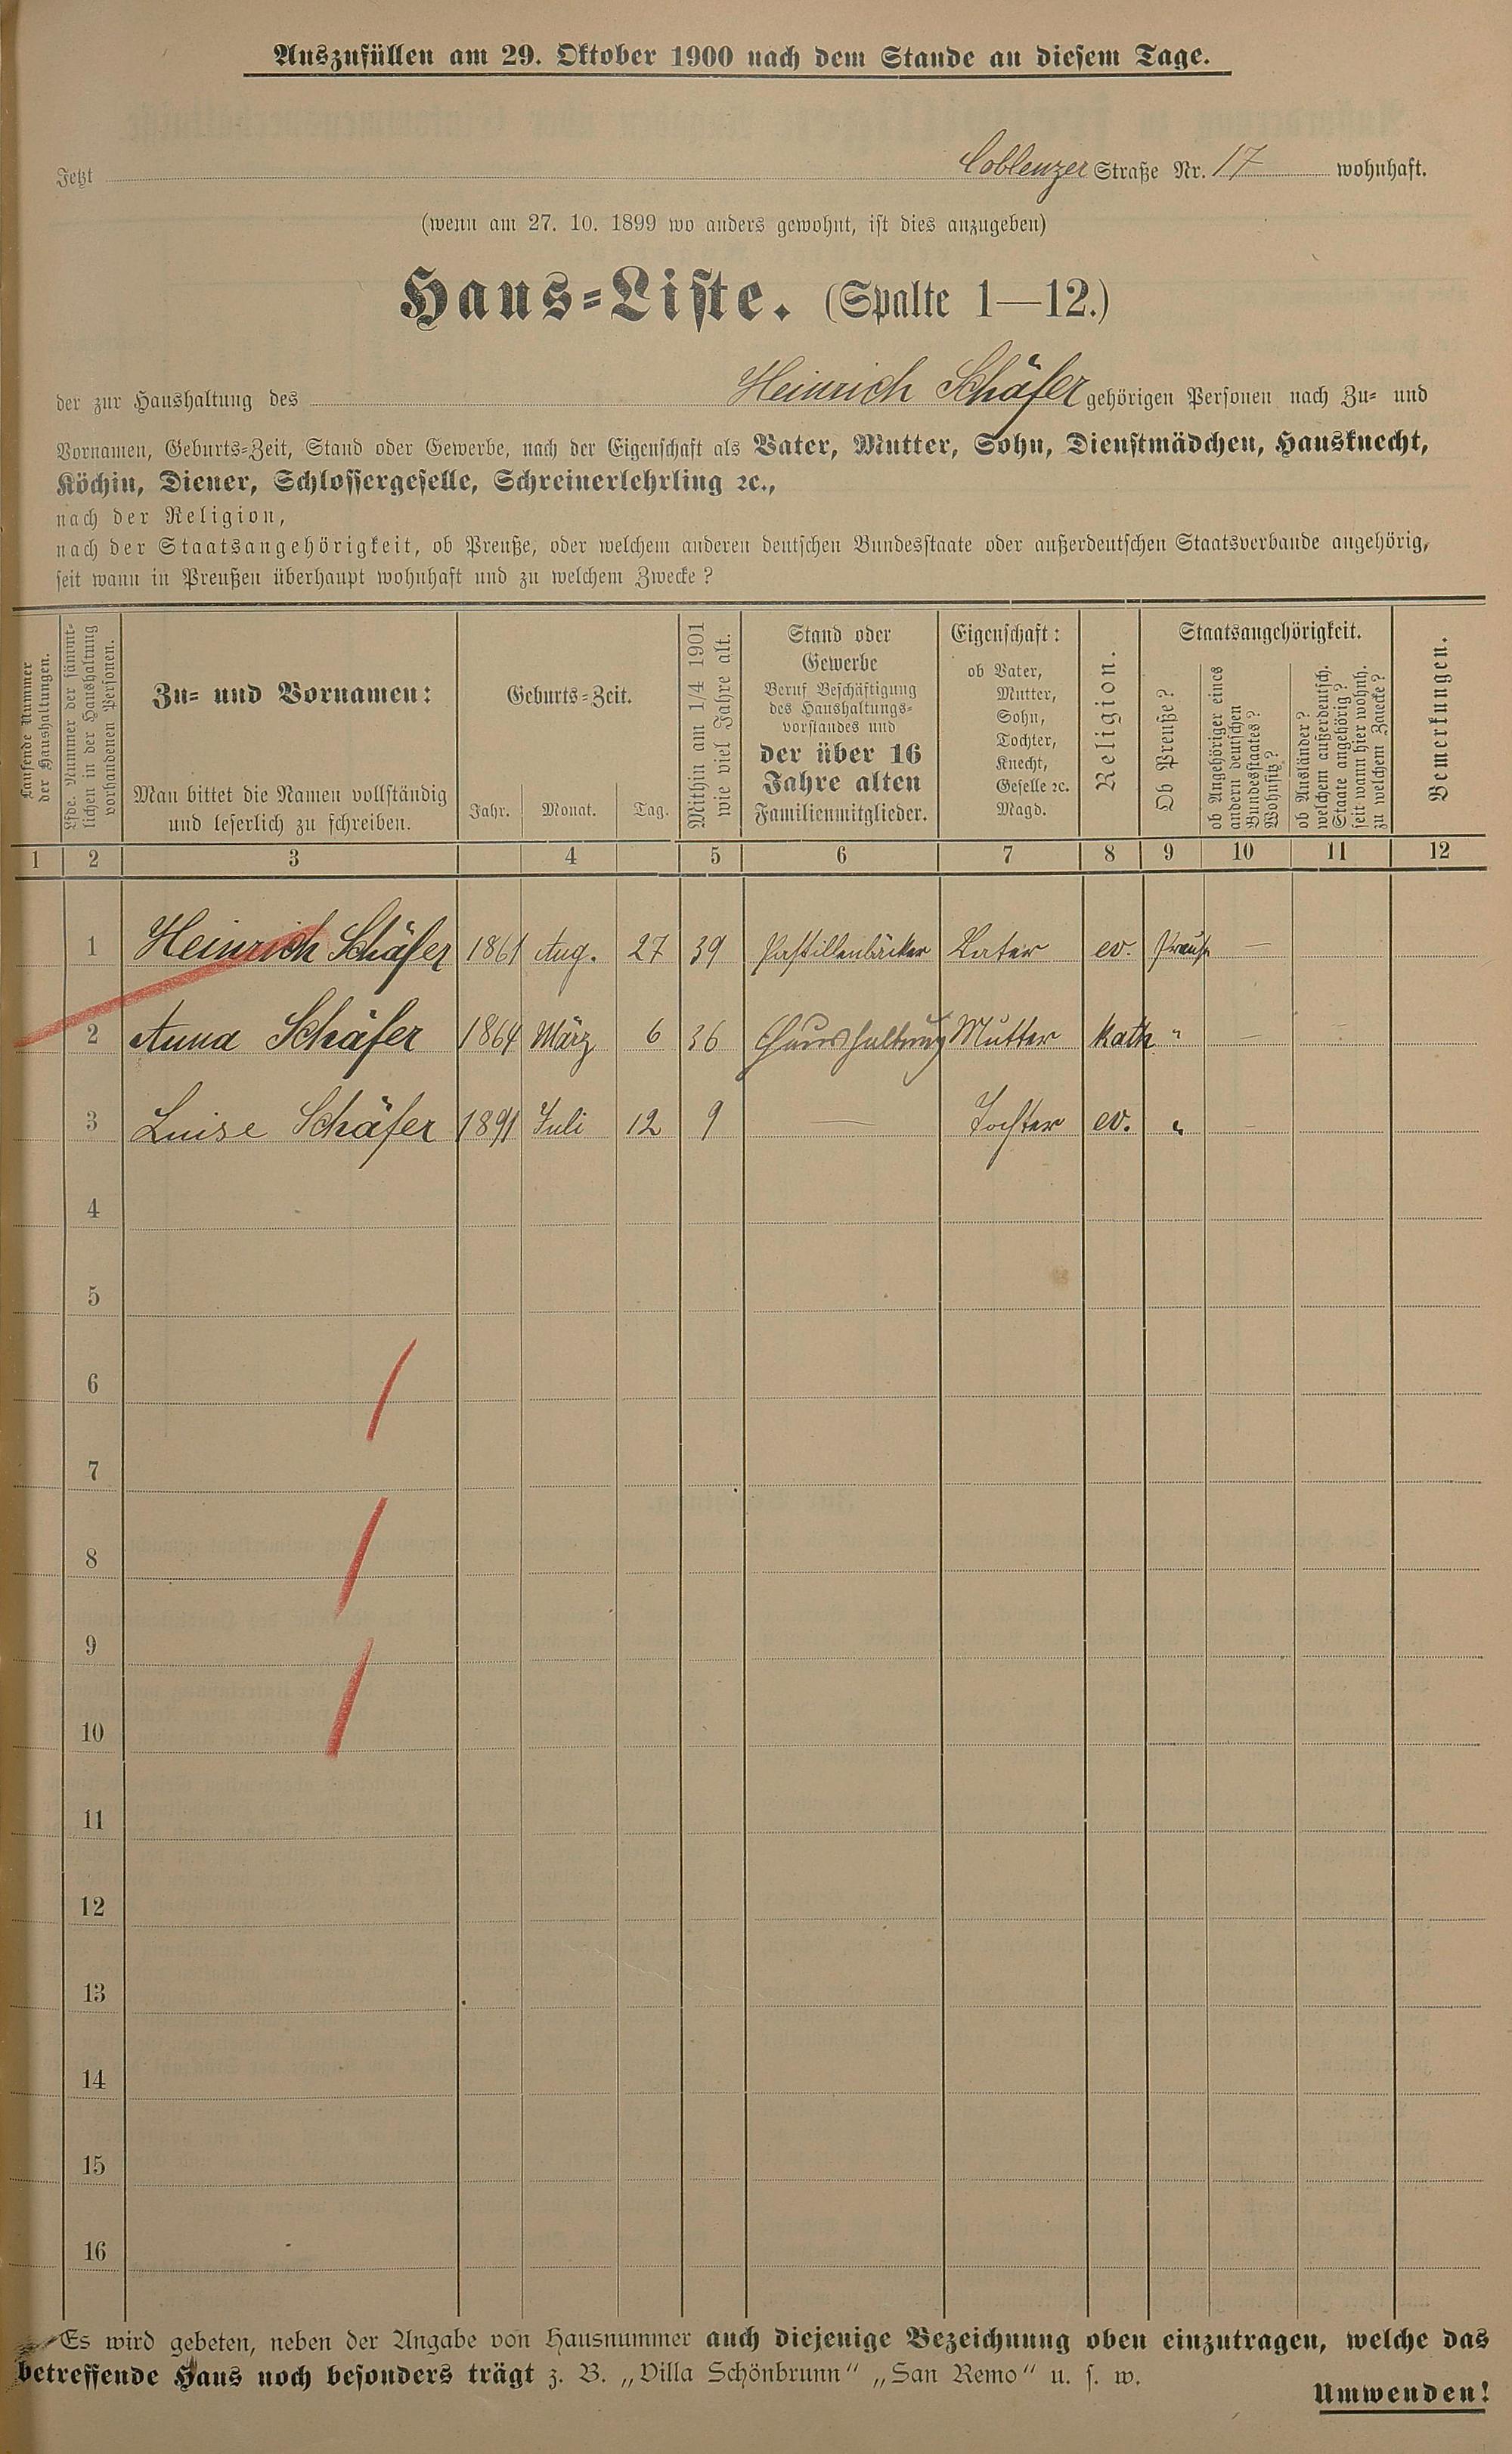 Auszufüllen am 29. Oktober 1900 nach dem Stande an diesem Tage.
Jetzt Coblenzer Straße Nr. 17 wohnhaft.
(wenn am 27. 10. 1899 wo anders gewohnt, ist dies anzugeben)
Haus-Liste. (Spalte 1—12.)
der zur Haushaltung des Heinrich Schäfer gehörigen Personen nach Zu- und
Vornamen, Geburts-Zeit, Stand oder Gewerbe, nach der Eigenschaft als Vater, Mutter, Sohn, Dienstmädchen, Hausknecht,
Köchin, Diener, Schlossergeselle, Schreinerlehrling ꝛc.,
nach der Religion,
nach der Staatsangehörigkeit, ob Preuße, oder welchem anderen deutschen Bundesstaate oder außerdeutschen Staatsverbande angehörig,
seit wann in Preußen überhaupt wohnhaft und zu welchem Zwecke?
Laufende Nummer
der Haushaltungen.
Lfde. Nummer der sämmt-
lichen in der Haushaltung
vorhandenen Personen.
Zu- und Vornamen:
Man bittet die Namen vollständig
und leserlich zu schreiben.
Geburts-Zeit.
Jahr. Monat. Tag.
Mithin am 1/4 1901
wie viel Jahre alt.
Stand oder
Gewerbe
Beruf Beschäftigung
des Haushaltungs-
vorstandes und
der über 16
Jahre alten
Familienmitglieder.
Eigenschaft:
ob Vater,
Mutter,
Sohn,
Tochter,
Knecht,
Geselle ꝛc.
Magd.
Religion.
Staatsangehörigkeit.
Ob Preuße?
ob Angehöriger eines
andern deutschen
Bundesstaates?
Wohnsitz?
ob Ausländer?
welchem außerdeutsch.
Staate angehörig?
seit wann hier wohnh.
zu welchem Zwecke?
Bemerkungen.
1 2 3 4 5 6 7 8 9 10 11 12
1 Heinrich Schäfer 1861 Aug. 27 39 Pastillenbäcker Vater ev. Preuße —
2 Anna Schäfer 1864 März 6 36 Haushaltung Mutter Kath " — —
3 Luise Schäfer 1891 Juli 12 9 — Tochter ev. " —
4
5
6
7
8
9
10
11
12
13
14
15
16
Es wird gebeten, neben der Angabe von Hausnummer auch diejenige Bezeichnung oben einzutragen, welche das
betreffende Haus noch besonders trägt z. B. „Villa Schönbrunn“ „San Remo“ u. s. w.
Umwenden!